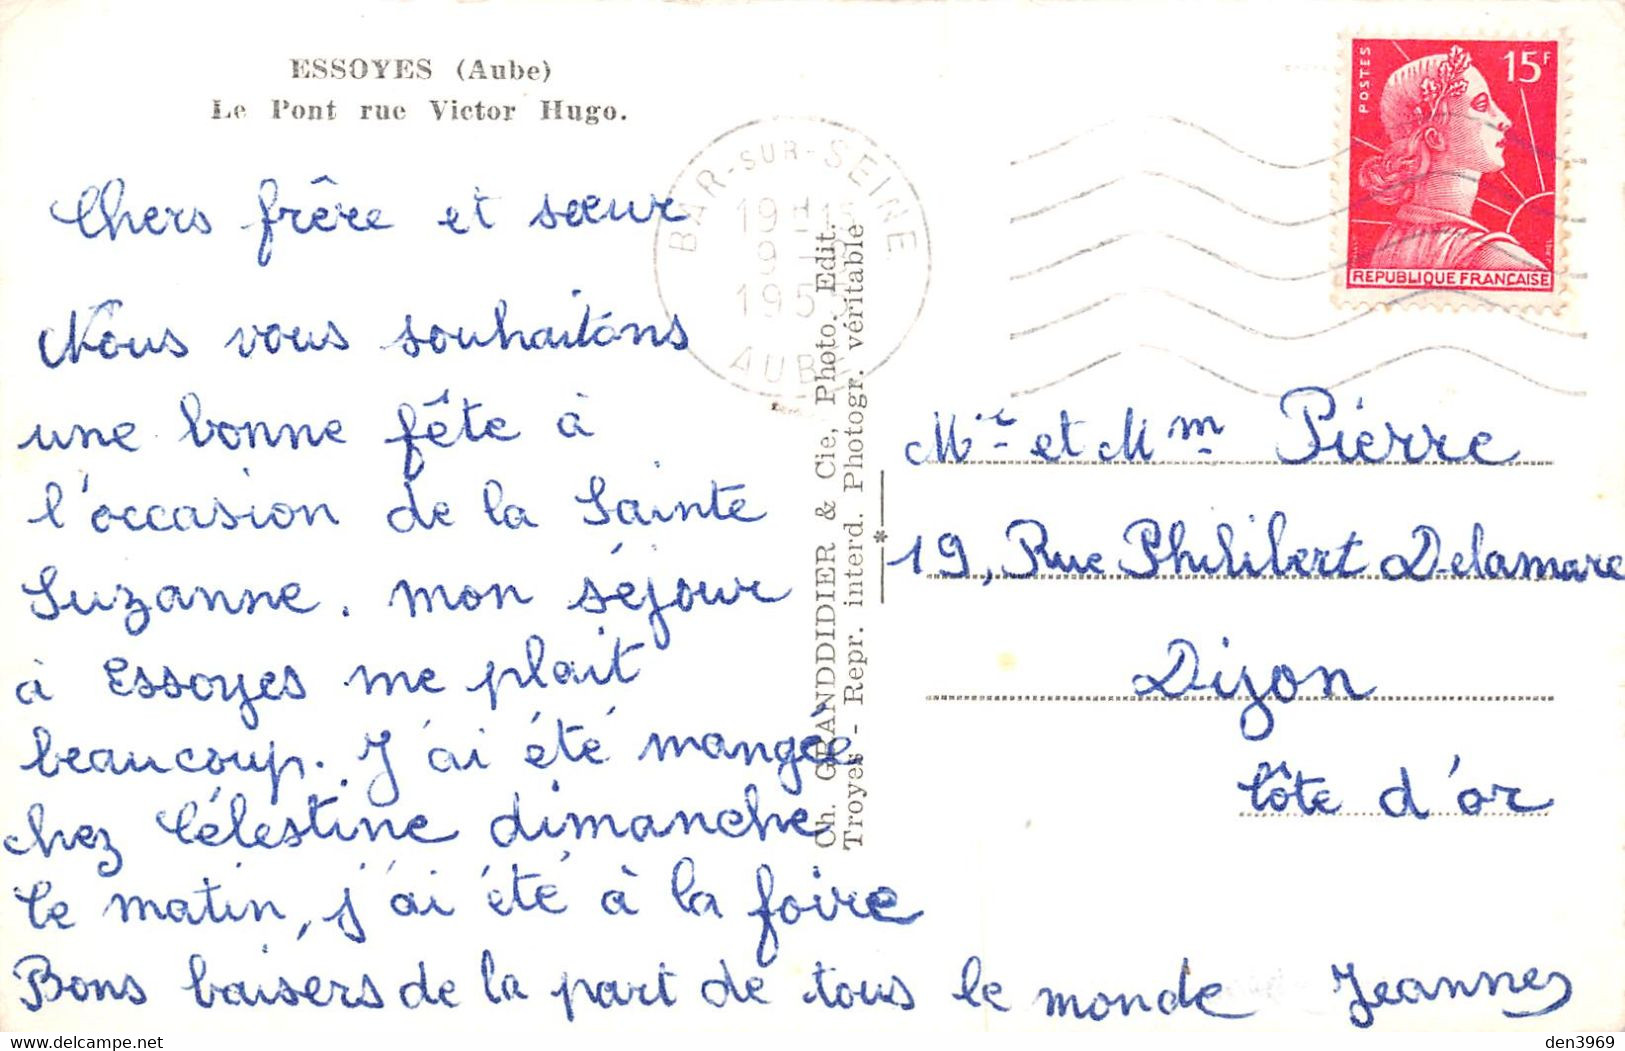 ESSOYES (Aube)
Le Pont rue Victor Hugo.
Chers frère et sœur
Nous vous souhaitons
une bonne fête à
l'occasion de la Sainte
Suzanne. mon séjour
à Essoyes me plait
beaucoup. J'ai été mangée
chez Célestine dimanche
le matin, j'ai été à la foire
Bons baisers de la part de tous le monde Jeanne
BAR-SUR-SEINE
AUBE
Ch. GRANDDIDIER & Cie, Photo. Edit.
Troyes - Repr. interd. Photogr. véritable
POSTES
15F
REPUBLIQUE FRANÇAISE
Mr et Mme Pierre
19, Rue Philibert Delamare
Dijon
Côte d'or
den3969